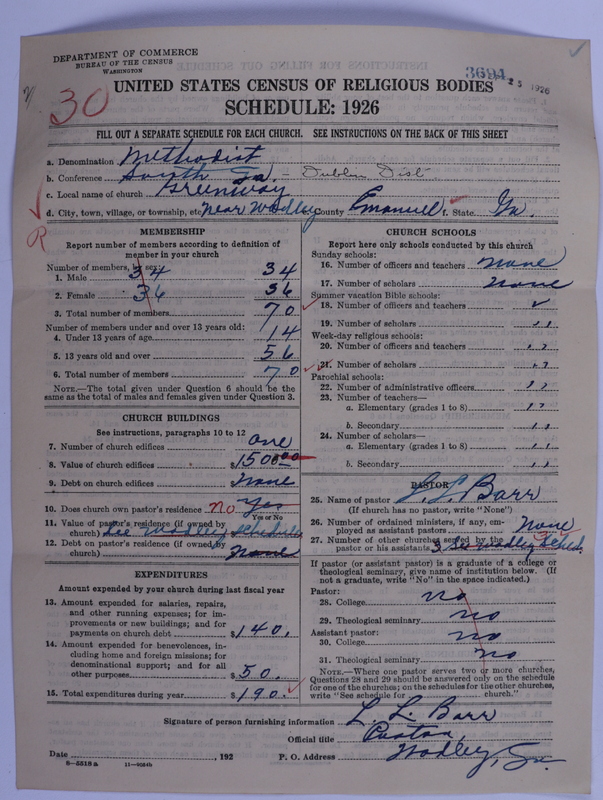 DEPARTMENT OF COMMERCE
BUREAU OF THE CENSUS
WASHINGTON
3694
25 1926
30
UNITED STATES CENSUS OF RELIGIOUS BODIES
SCHEDULE: 1926
FILL OUT A SEPARATE SCHEDULE FOR EACH CHURCH. SEE INSTRUCTIONS ON THE BACK OF THIS SHEET
a. Denomination Methodist
b. Conference South Ga. - Dublin Dist
c. Local name of church Greenway
d. City, town, village, or township, etc near Wadley County Emanuel f. State Ga.
R
MEMBERSHIP
Report number of members according to definition of
member in your church
Number of members, by sex:
1. Male 34 34
2. Female 36 36
3. Total number of members 70
Number of members under and over 13 years old:
4. Under 13 years of age 14
5. 13 years old and over 56
6. Total number of members 70
NOTE.—The total given under Question 6 should be the
same as the total of males and females given under Question 3.
CHURCH BUILDINGS
See instructions, paragraphs 10 to 12
7. Number of church edifices one
8. Value of church edifices $1500.00
9. Debt on church edifices none
10. Does church own pastor's residence no Yes
Yes or No
11. Value of pastor's residence (if owned by
church) See Wadley schedule
12. Debt on pastor's residence (if owned by
church) none
EXPENDITURES
Amount expended by your church during last fiscal year
13. Amount expended for salaries, repairs,
and other running expenses; for im-
provements or new buildings; and for
payments on church debt $140.
14. Amount expended for benevolences, in-
cluding home and foreign missions; for
denominational support; and for all
other purposes $50.
15. Total expenditures during year $190.
CHURCH SCHOOLS
Report here only schools conducted by this church
Sunday schools:
16. Number of officers and teachers none
17. Number of scholars none
Summer vacation Bible schools:
18. Number of officers and teachers
19. Number of scholars
Week-day religious schools:
20. Number of officers and teachers
21. Number of scholars
Parochial schools:
22. Number of administrative officers
23. Number of teachers—
a. Elementary (grades 1 to 8)
b. Secondary
24. Number of scholars—
a. Elementary (grades 1 to 8)
b. Secondary
PASTOR
25. Name of pastor L. L. Barr
(If church has no pastor, write "None")
26. Number of ordained ministers, if any, em-
ployed as assistant pastors None
27. Number of other churches served by the
pastor or his assistants 3 See Wadley Sched.
If pastor (or assistant pastor) is a graduate of a college or
theological seminary, give name of institution below. (If
not a graduate, write "No" in the space indicated.)
Pastor:
28. College no
29. Theological seminary no
Assistant pastor:
30. College no
31. Theological seminary no
NOTE.—Where one pastor serves two or more churches,
Questions 28 and 29 should be answered only on the schedule
for one of the churches; on the schedules for the other churches,
write "See schedule for church."
Signature of person furnishing information L. L. Barr
Official title Pastor,
Date , 192 P. O. Address Wadley, Ga.
8-5518a 11-9034b